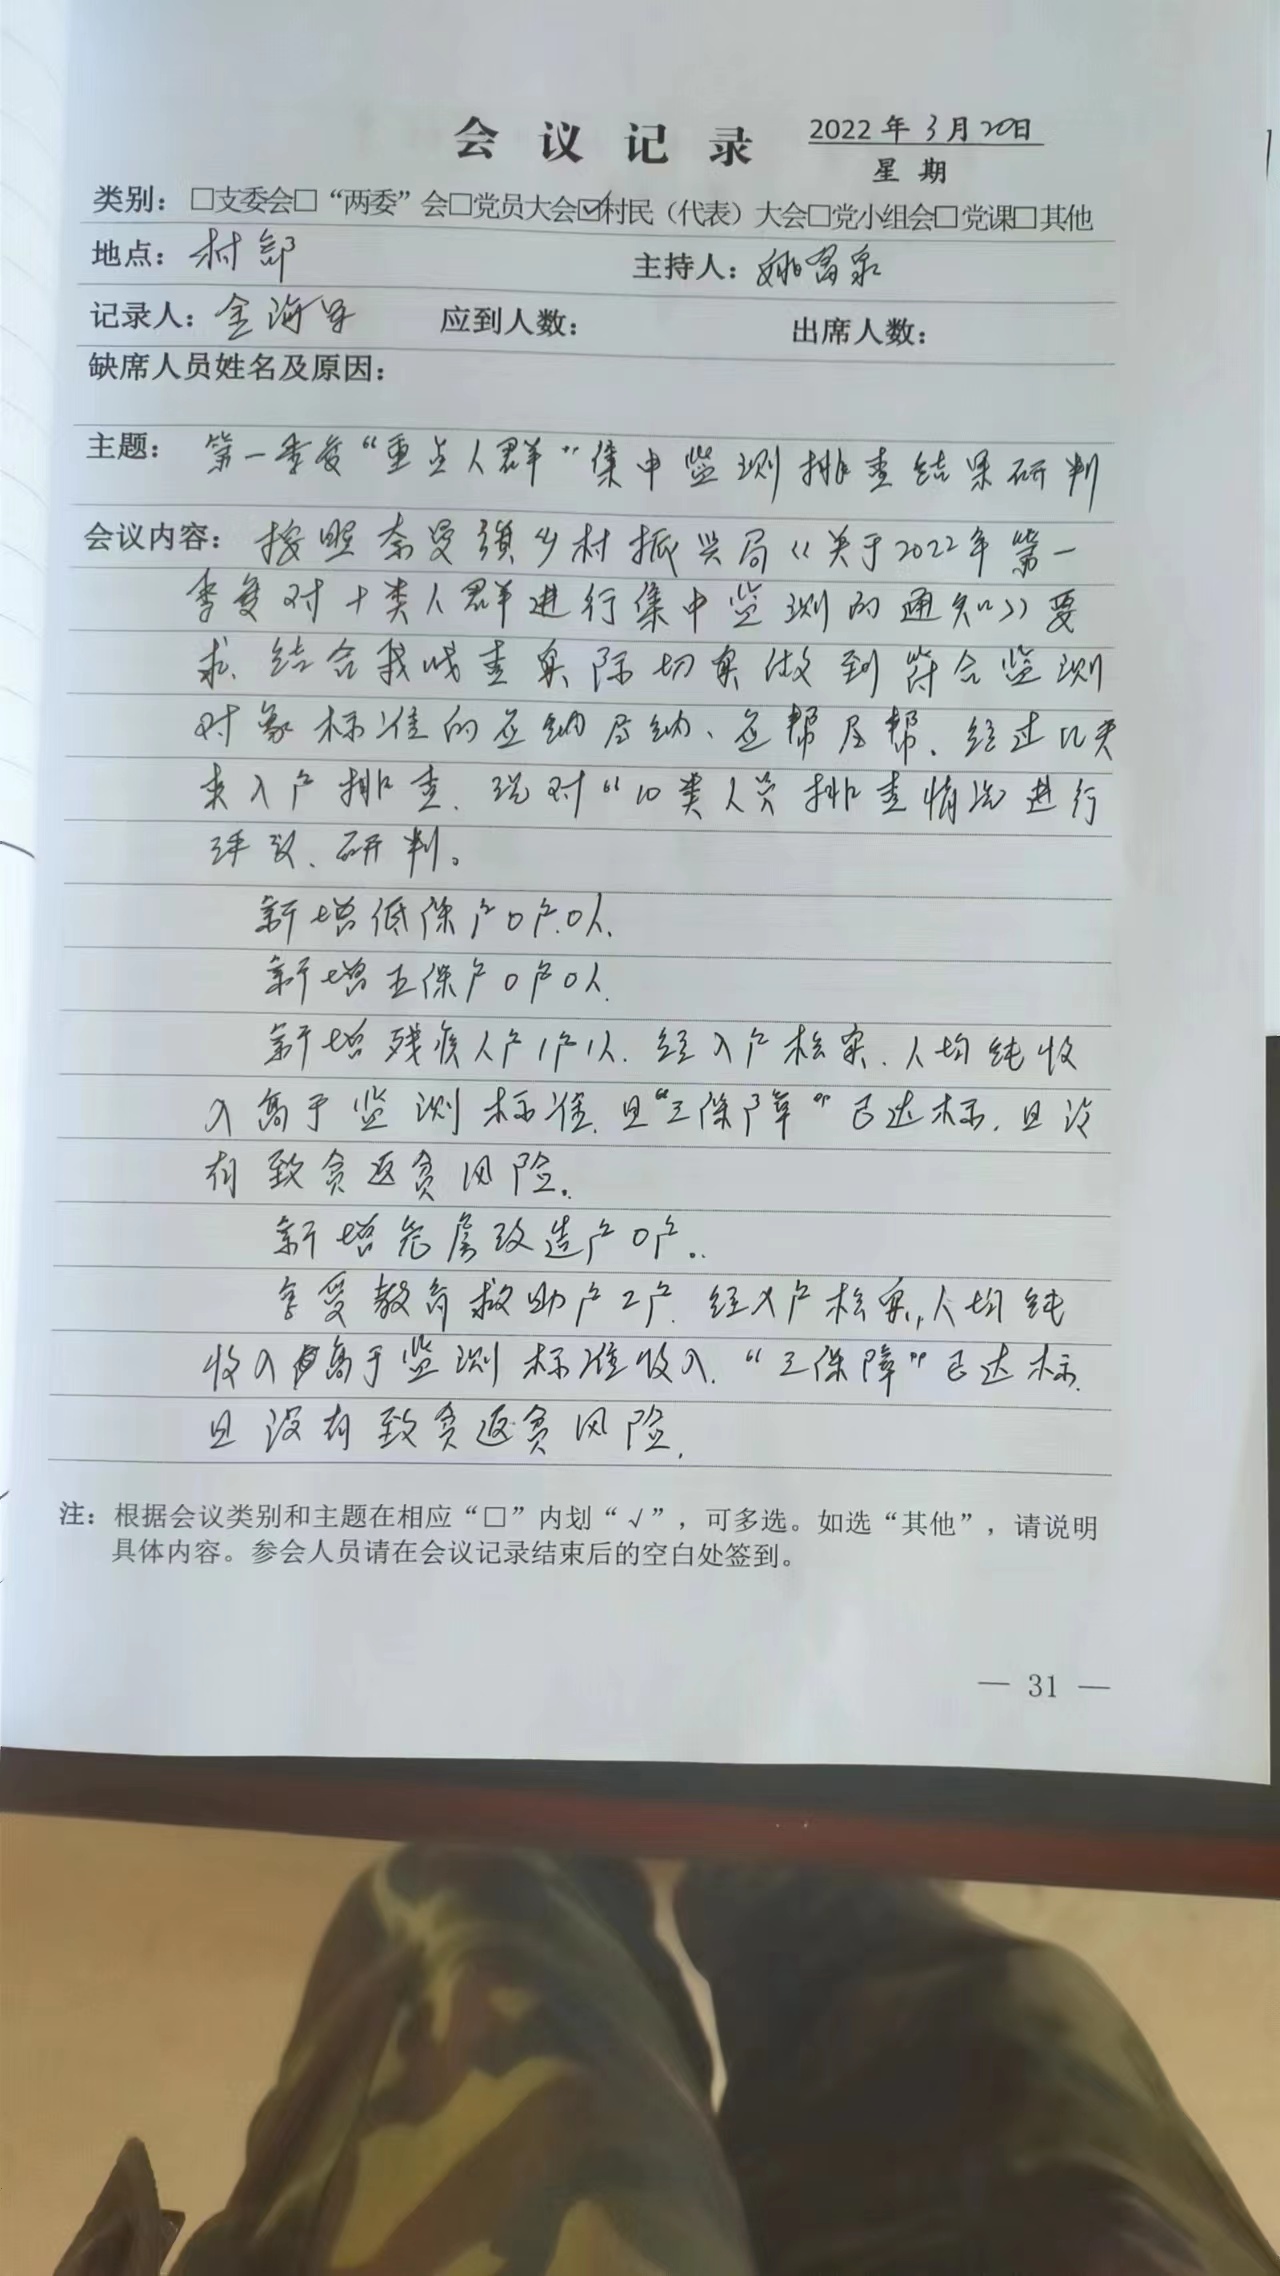 会议记录
2022年3月20日
星期
类别：□支委会□“两委”会□党员大会☑村民（代表）大会□党小组会□党课□其他
地点：村部 主持人：姚富泉
记录人：金海 应到人数： 出席人数：
缺席人员姓名及原因：
主题：第一季度“重点人群”集中监测排查结果研判
会议内容：按照奈曼镇乡村振兴局《关于2022年第一
季度对十类人群进行集中监测的通知》要
求、结合我嘎查实际切实做到符合监测
对象标准的应纳尽纳、应帮尽帮、经过
入户排查、现对“10类人员排查情况进行
评议、研判。
新增低保户0户0人、
新增五保户0户0人
新增残疾人户1户1人、经入户核实、人均纯收
入高于监测标准、且“三保障”已达标、且没
有致贫返贫风险。
新增危房改造户0户。
享受教育救助户2户、经入户核实，人均纯
收入高于监测标准收入、“三保障”已达标、
且没有致贫返贫风险、
注：根据会议类别和主题在相应“□”内划“√”，可多选。如选“其他”，请说明
具体内容。参会人员请在会议记录结束后的空白处签到。
— 31 —